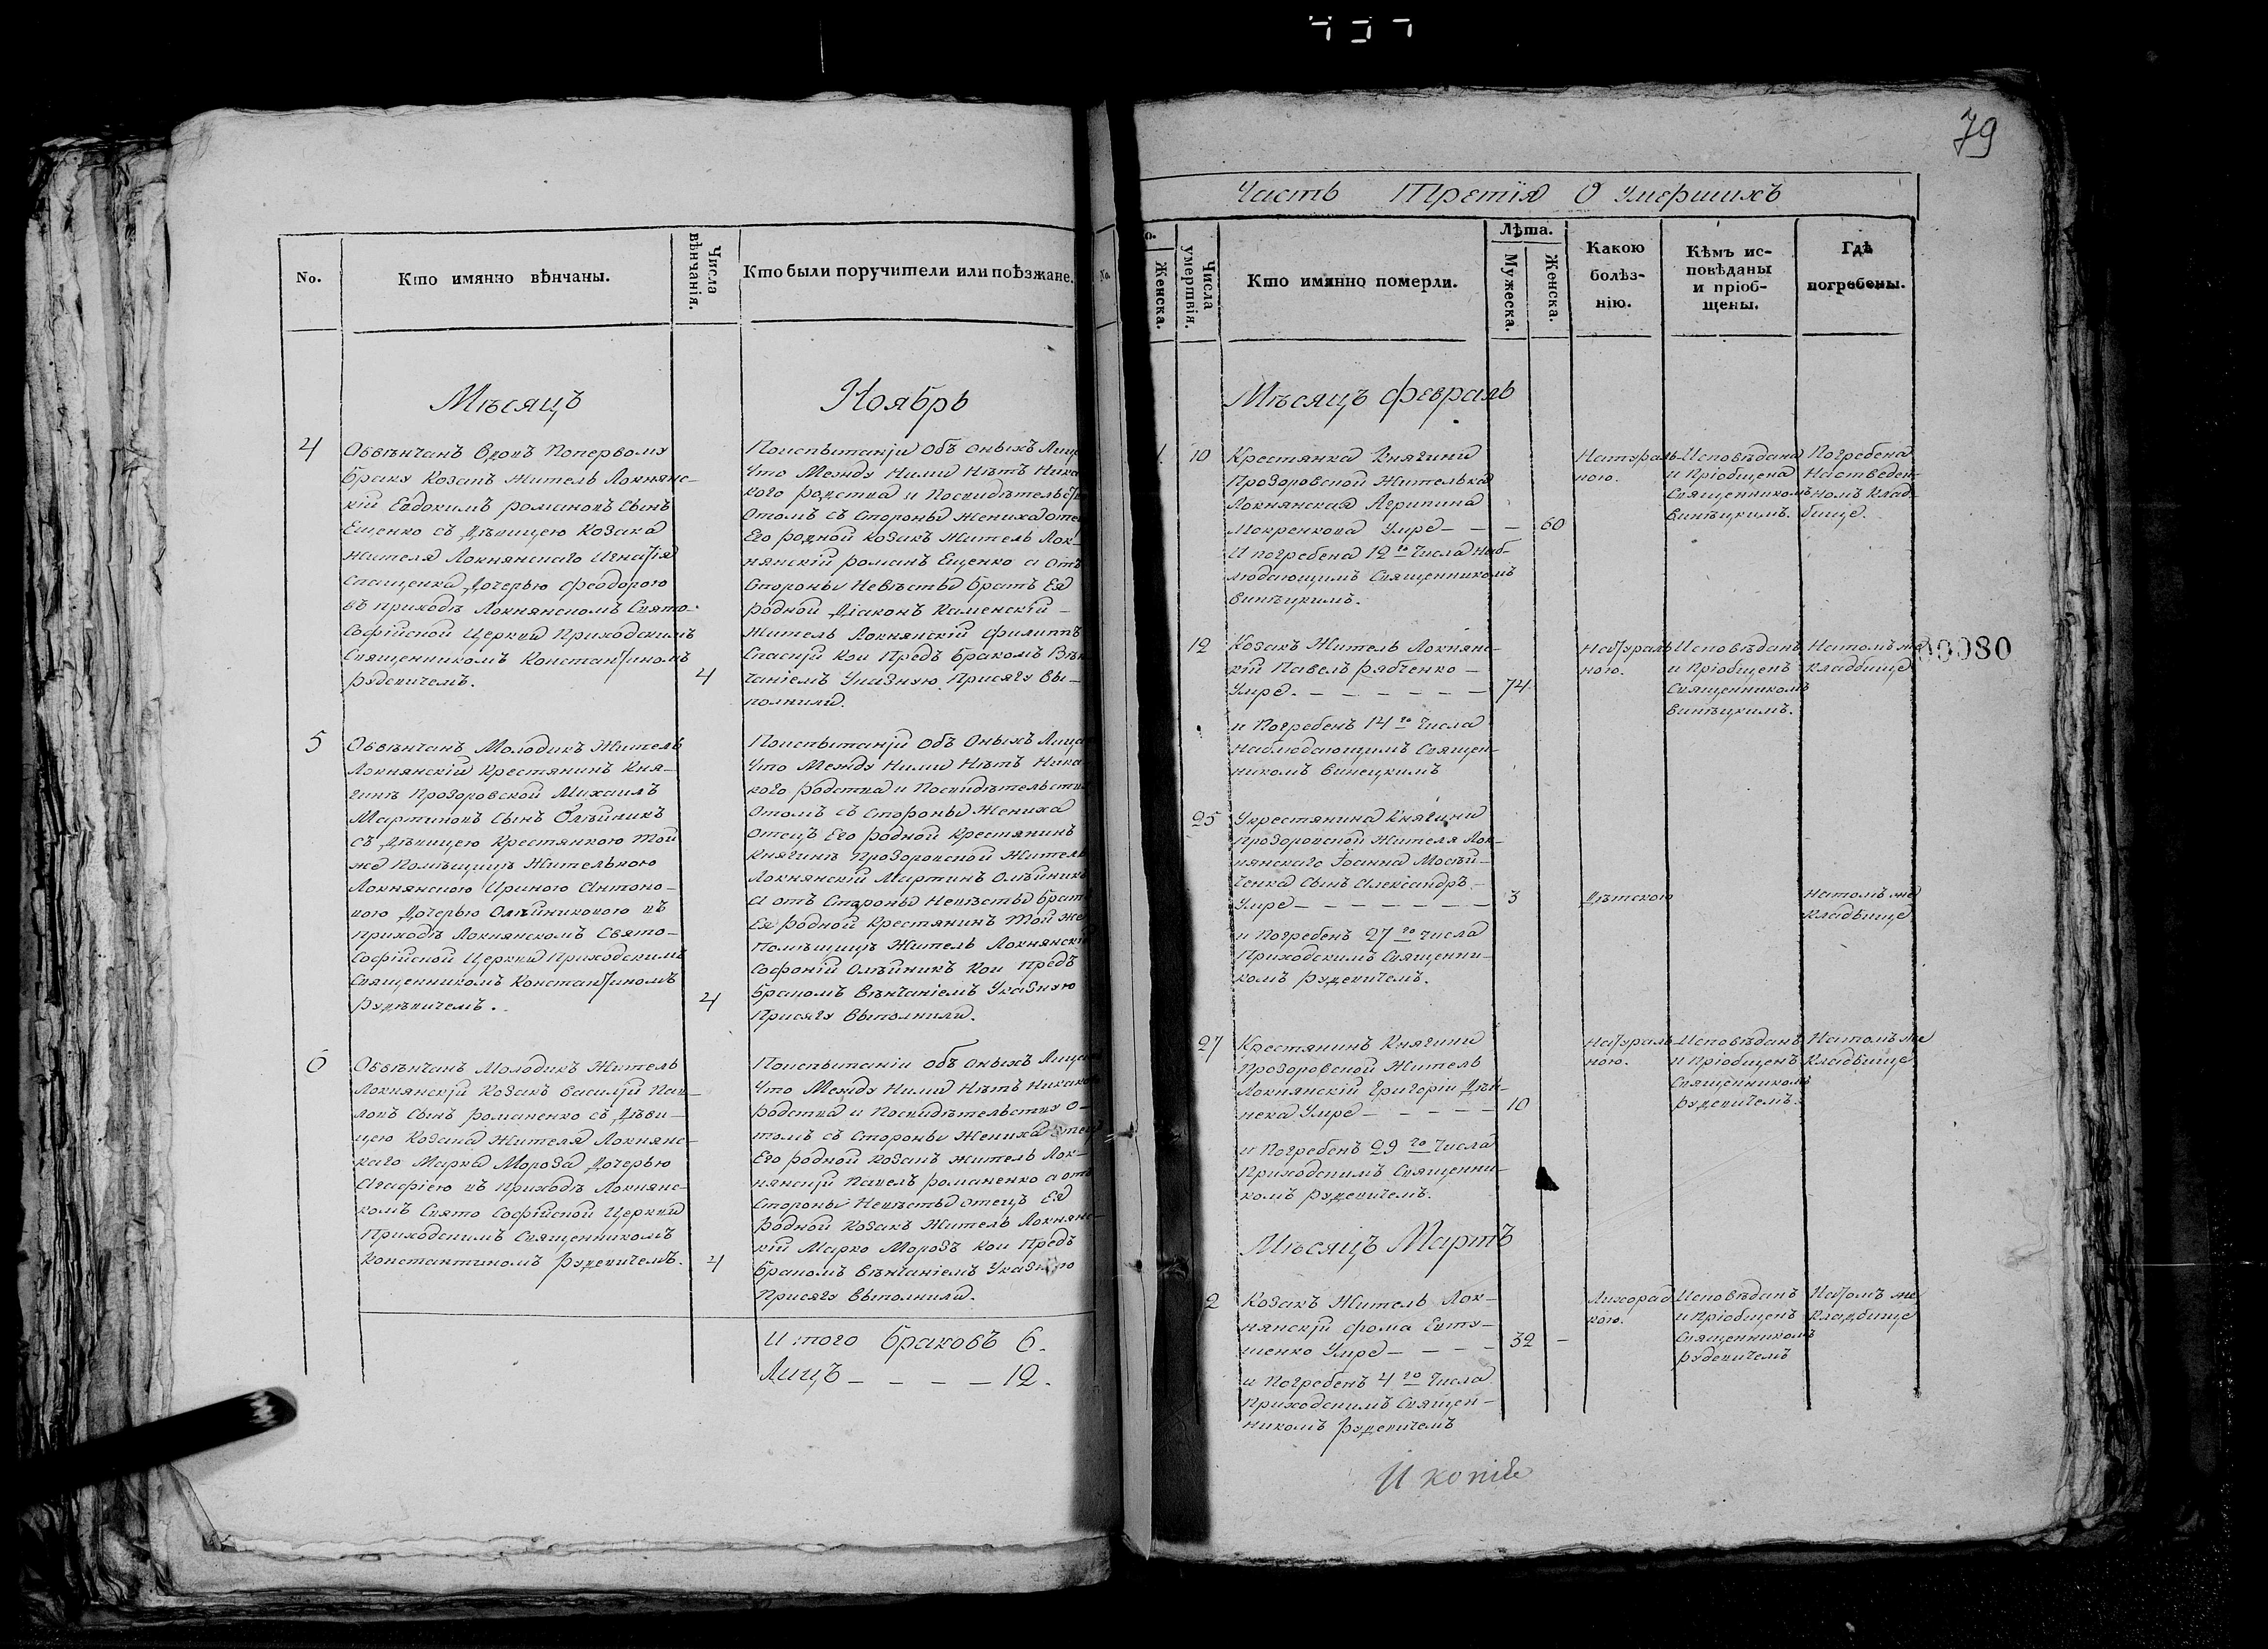 79
No.
Кто имянно вѣнчаны.
Числа вѣнчанія.
Кто были поручители или поѣзжане.
Мѣсяцъ Ноябрь
4
Обвѣнчанъ Вдовъ Поперв​ому
браку Козакъ житель Локнянс-
кій Евдокимъ Романовъ Сынъ
Ещенко съ Дѣвицею Козака
жителя Локнянскаго Игнатія
Спащенка Дочерью Феодорою
въ приходѣ Локнянскомъ Свято-
Софійской Церкви Приходскимъ
Священникомъ Константиномъ
Рудевичемъ.
4
Поиспытаніи Объ оныхъ Лиц
Что Между Ними Нѣтъ Ника
кого родства и Посвидѣтельств
Отомъ съ Стороны Жениха оте
Его родной Козакъ Житель Лок-
нянскій Романъ Ещенко а отъ
Стороны Невѣсты братъ Ея
родной Діаконъ Каменскій –
Житель Локнянскій Филиппъ
Спаскій Кои Предъ бракомъ Вѣн
чаніемъ Указную Присягу Вы-
полнили.
5
Обвѣнчанъ Молодикъ Житель
Локнянскій Крестянинъ Кня-
гинѣ Прозоровской Михаилъ
Мартиновъ Сынъ Олѣйникъ
съ Дѣвицею Крестянкою той
же Помѣщицѣ Жителькою
Локнянскою Ириною Антоно-
вою Дочерью Олѣйниковою въ
приходѣ Локнянскомъ Свято-
Софійской Церкви Приходскимъ
Священникомъ Константиномъ
Рудѣвичемъ.
4
Поиспытаніи Объ Оныхъ Лица
Что Между Ними Нѣтъ Ника
кого родства и Посвидѣтельств
отомъ съ Стороны Жениха
отецъ Его родной Крестянинъ
Княгинѣ Прозоровской Житель
Локнянскій Мартинъ Олѣйник
а отъ Стороны Невѣсты брат
Ея родной Крестянинъ той же
Помѣщицѣ Житель Локнянскі
Софоній Олѣйникъ Кои Предъ
бракомъ Вѣнчаніемъ Указную
Присягу Выполнили.
6
Обвѣнчанъ Молодикъ Житель
Локнянскій Козакъ Василій Пав-
ловъ Сынъ Романенко съ Дѣви-
цею Козака Жителя Локнянс-
каго Марка Мороза Дочерью
Агафіею въ Приходѣ Локнянс-
комъ Свято Софійской Церкви
Приходскимъ Священникомъ
Константиномъ Рудевичемъ.
4
Поиспытаніи объ оныхъ Лица
Что Между Ними Нѣтъ Никако
родства и Посвидѣтельству о-
томъ съ Стороны Жениха отец
Его родной Козакъ житель Лок-
нянскій Павелъ Романенко а отъ
Стороны Невѣсты отецъ Ея
родной Козакъ Житель Локнянс-
кій Марко Морозъ Кои Предъ
бракомъ Вѣнчаніемъ Указную
Присягу Выполнили.
Итого браковъ 6.
Лицъ – – – – 12.
Часть Третія О Умершихъ
Женска.
Числа умертвія.
Кто имянно померли.
Лѣта.
Мужеска.
Женска.
Какою болѣз-
нію.
Кѣмъ ис-
повѣданы
и пріоб-
щены.
Гдѣ
погребены.
Мѣсяцъ Февраль
1.
10
Крестянка Княгини
Прозоровской Жителька
Локнянская Агрипина
Мокренкова Умре – – –
60
И погребена 12го Числа наб-
людающимъ Священникомъ
Винѣцкимъ.
Натураль-
ною.
Исповѣдана
и Пріобщена
Священникомъ
Винѣцкимъ.
Погребена
Наотведен-
номъ Клад-
бище.
12
Козакъ Житель Локнянс-
кій Павелъ Рябченко –
Умре. – – – – – –
74
и Погребенъ 14го Числа
Наблюдающимъ Священ-
никомъ Винецкимъ
Натураль
ною.
Исповѣданъ
и Пріобщенъ
Священникомъ
Винѣцкимъ.
Натомъ же
кладбище
00080
25
Укрестянина Княгини
Прозоровской Жителя Лок-
нянскаго Іоанна Мосѣй-
ченка Сынъ Александръ –
Умре – – – – – – –
3
и Погребенъ 27го числа
Приходскимъ Священни-
комъ Рудевичемъ.
Дѣтскою
Натомъ же
Кладбище
27
Крестянинъ Княгини
Прозоровской Житель
Локнянскій Григоріи Дѣй-
нека Умре – – – – –
10
и Погребенъ 29го Числа
Приходскимъ Священни-
комъ Рудевичемъ.
Натураль
ною.
Исповѣданъ
и Пріобщенъ
Священникомъ
Рудевичемъ.
Натомъ же
Кладбище
Мѣсяцъ Мартъ
2
Козакъ Житель Лок-
нянскій Фома Евту-
шенко Умре – – – –
32
–
и Погребенъ 4го Числа
Приходскимъ Священ-
никомъ Рудевичемъ
Лихорад
кою.
Исповѣданъ
и Пріобщенъ
Священникомъ
Рудевичемъ
Натомъ же
Кладбище